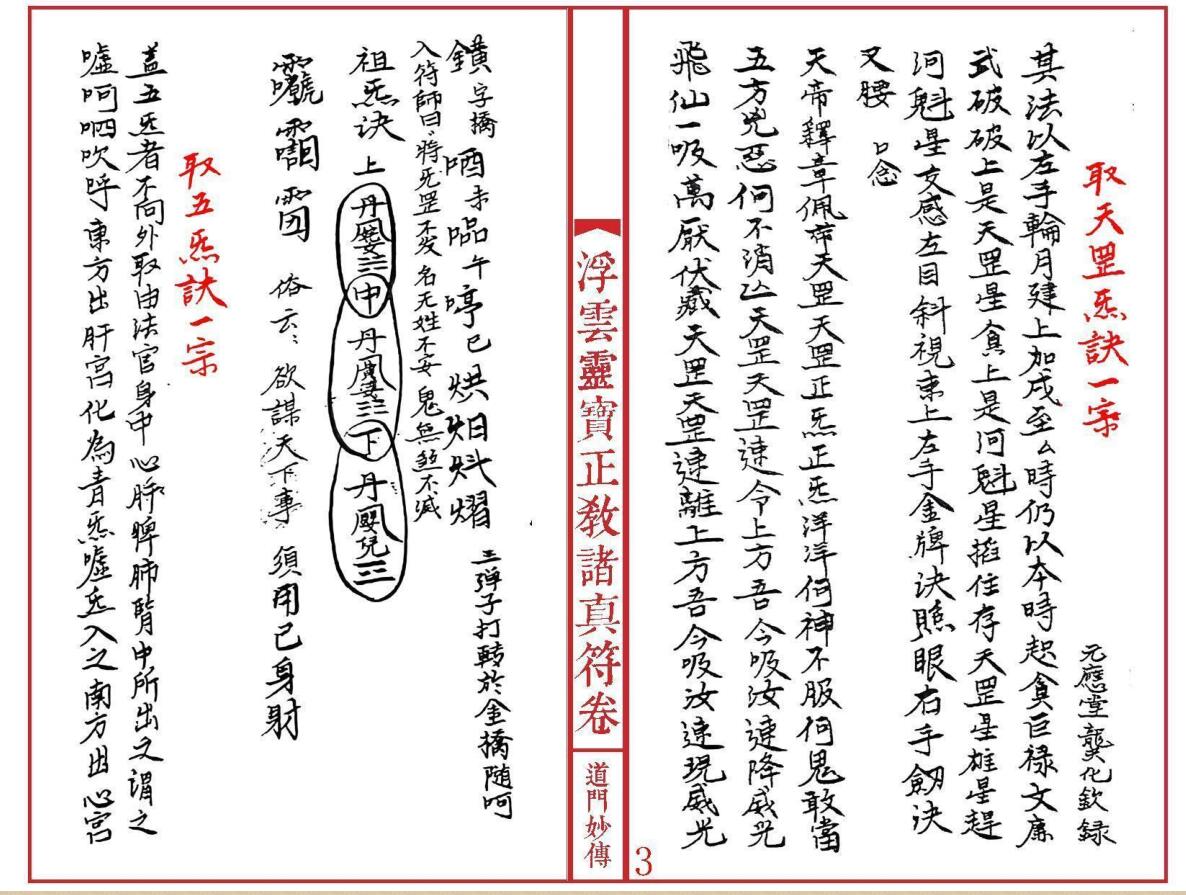 取天罡炁訣一宗
元應堂龔化欽録
其法以左手輪月建上加戍至么時仍以本時起貪巨禄文廉
武破破上是天罡星貪上是河魁星掐住存天罡星雄星趕
河魁星交感左目斜視東上左手金牌决照眼右手劒决
又腰 口念
天帝釋章佩帝天罡天罡正炁正炁洋洋何神不服何鬼敢當
五方兇惡何不消亾天罡天罡速令上方吾今吸汝速降威光
飛仙一吸萬厭伏藏天罡天罡速離上方吾今吸汝速現威光
3
浮雲靈寶正教諸真符卷
道門妙傳
字擕 唒 未 㗊 午 㖙 巳 烘 炟 㷁 熠 三弾子打転於金擕隨呵
入符師曰将炁罡不发名无姓不安鬼無煞不滅
祖炁诀 上 丹 三 申 丹 三 下 丹 三
俗云欲謀天下事 須用已身射
取五炁訣一宗
蓋五炁者不向外取由法官身中心肝脾肺腎中所出之謂之
嘘呵呬吹呼東方出肝宫化為青炁嘘炁入之南方出心宫